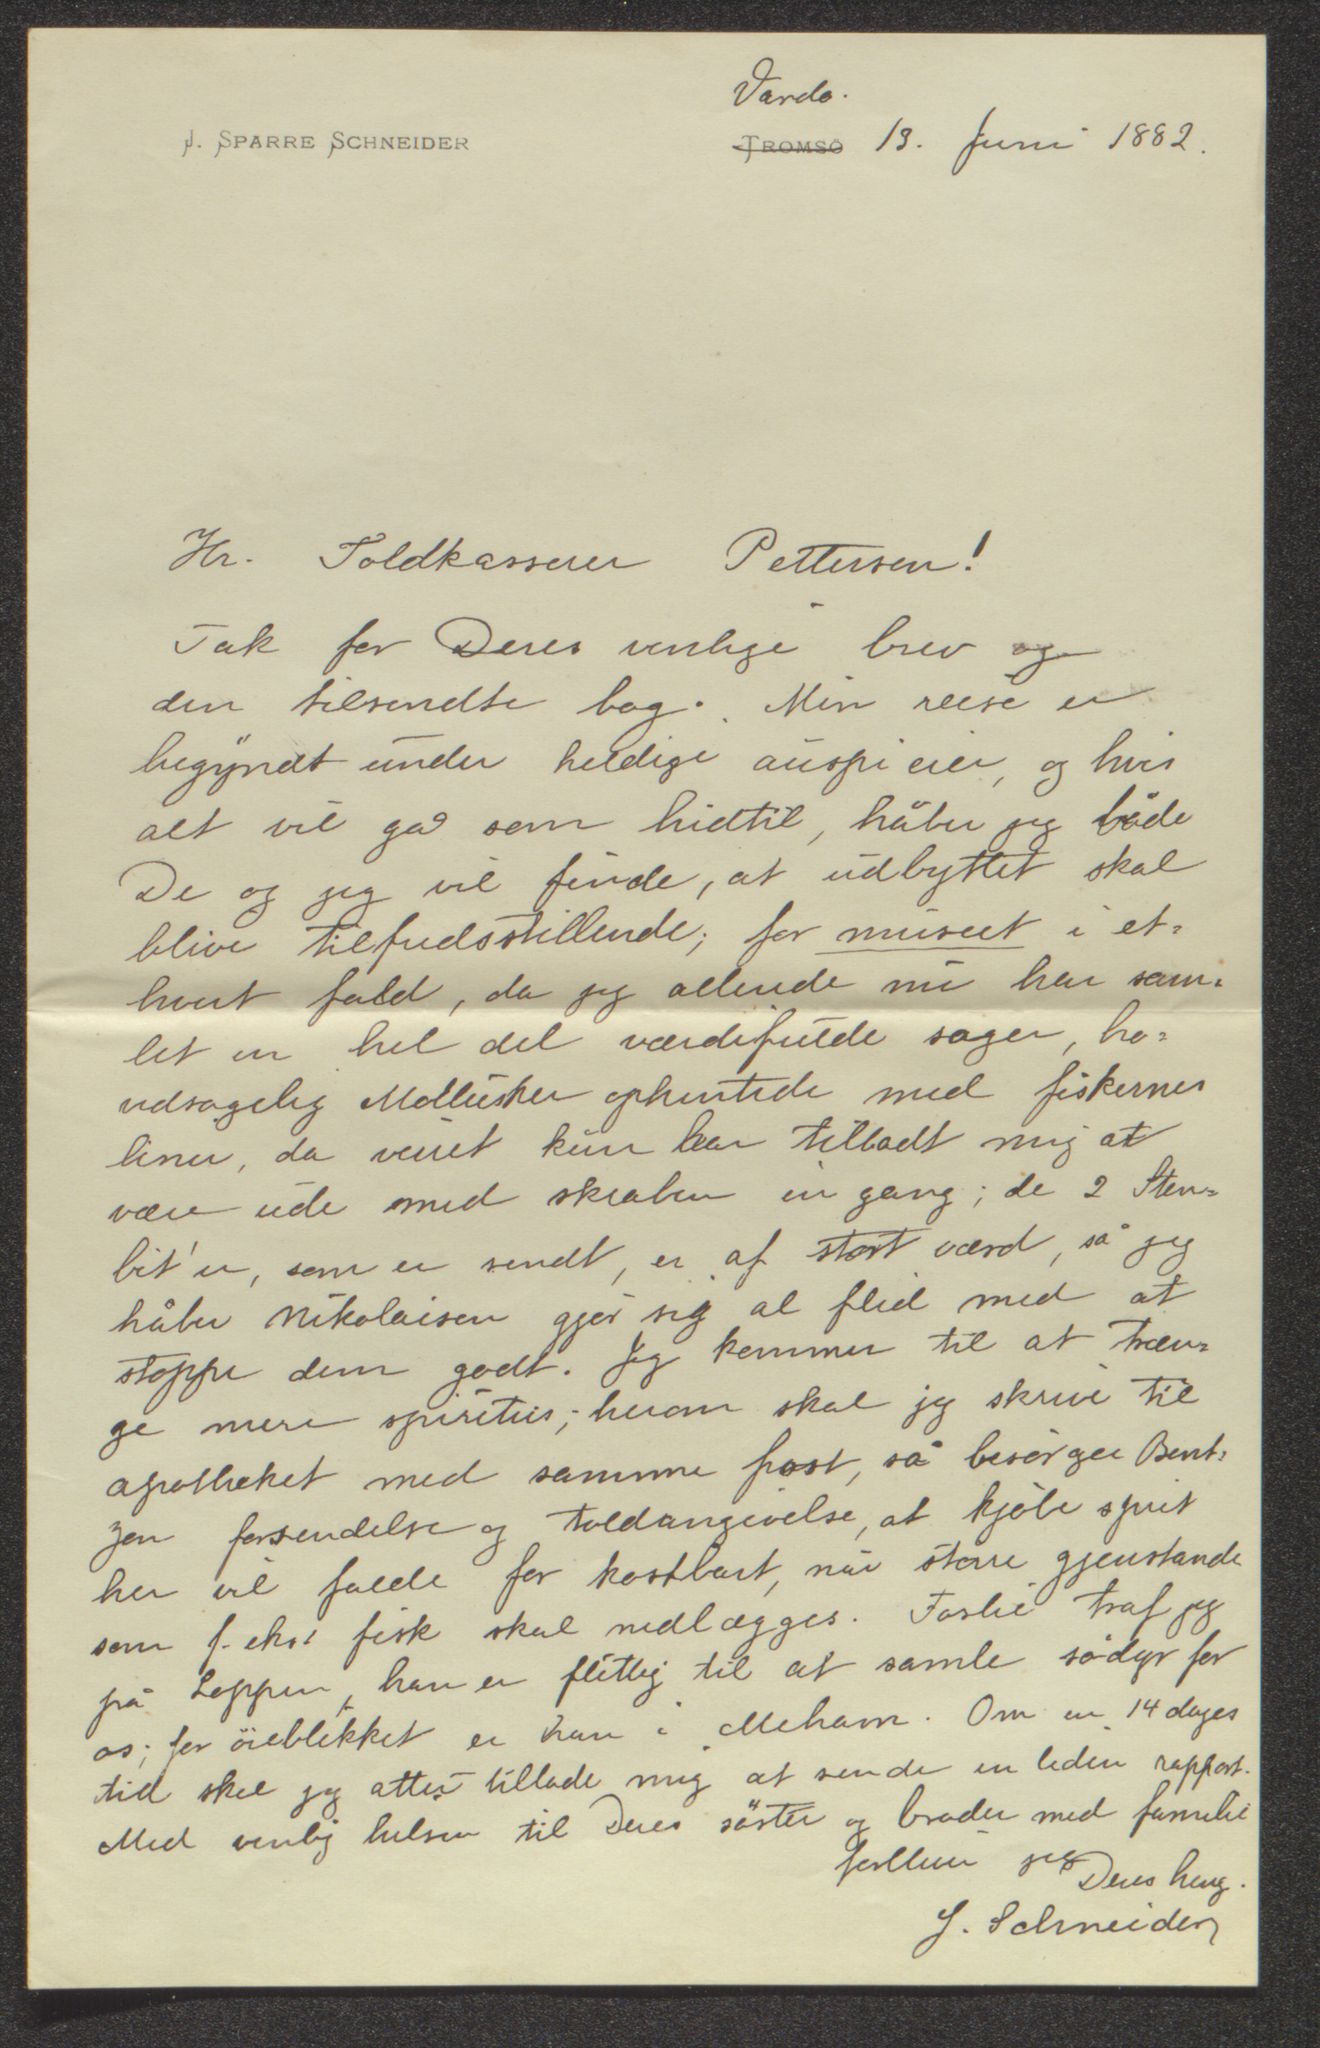 Vardø.
J. SPARRE SCHNEIDER
TROMSÖ 13. Juni 1882.
Hr. Toldkasserer Pettersen!
Tak for Deres venlige brev og
den tilsendte bog. Min reise er
begyndt under heldige auspicier, og hvis
alt vil gå som hidtil, håber jeg både
De og jeg vil finde, at udbyttet skal
blive tilfredsstillende; for museet i et-
hvert fald, da jeg allerede nu har sam-
let en hel del værdifulde sager, ho-
vedsagelig Mollusker ophentede med fiskernes
liner, da veiret kun har tilladt mig at
være ude med skraben en gang; de 2 Sten-
bit'er, som er sendt, er af stort værd, så jeg
håber Nikolaisen gjør sig al flid med at
stoppe dem godt. Jeg kommer til at træn-
ge mere spiritus; herom skal jeg skrive til
apotheket med samme post, så besørger Bent-
zen forsendelse og toldangivelse, at kjøbe sprit
her vil falde for kostbart, når større gjenstande
som f. eks. fisk skal nedlægges. Foslie traf jeg
på Loppen, han er flittig til at samle södyr for
os; for öieblikket er han i Mehavn. Om en 14 dages
tid skal jeg atter tillade mig at sende en liden rapport.
Med venlig hilsen til Deres söster og broder med familie
forbliver jeg Deres heng.
J. Schneider